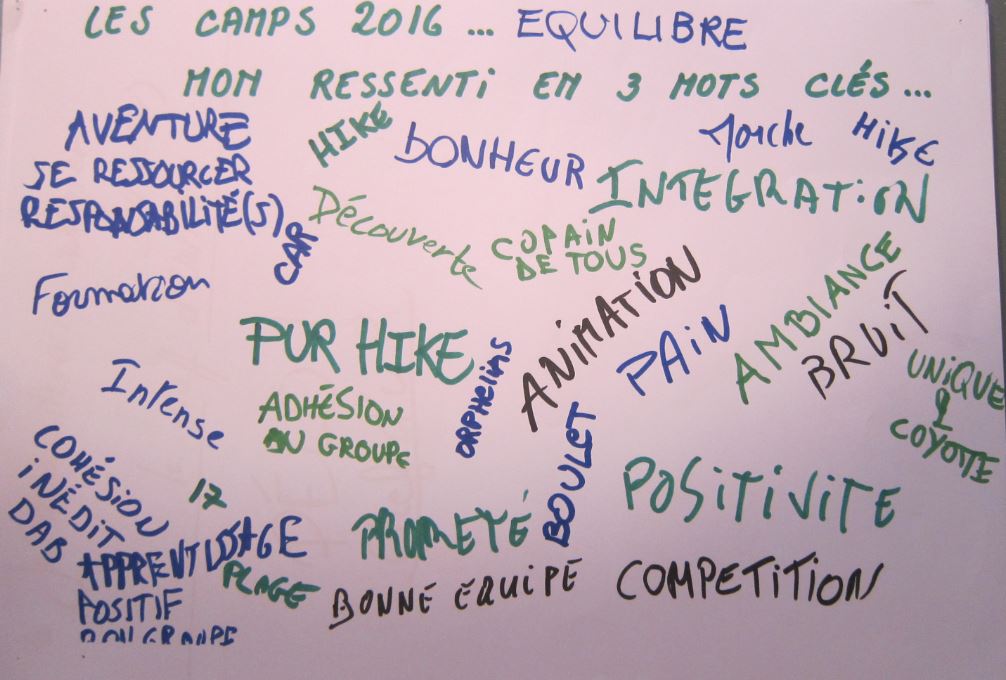 LES CAMPS 2016 ... EQUILIBRE
MON RESSENTI EN 3 MOTS CLÉS...
AVENTURE
HIKE
BONHEUR
Marche
HIKE
SE RESSOURCER
RESPONSABILITÉ(S)
INTEGRATION
CAR
Découverte
COPAIN
DE TOUS
Formation
ANIMATION
AMBIANCE
PUR HIKE
PAIN
BRUIT
ORPHELINS
Intense
ADHÉSION
AU GROUPE
UNIQUE
COYOTTE
BOULET
COHÉSION
INÉDIT
DAB
17
POSITIVITE
APPRENTISSAGE
PLAGE
BONNE ÉQUIPE
COMPETITION
POSITIF
BON GROUPE